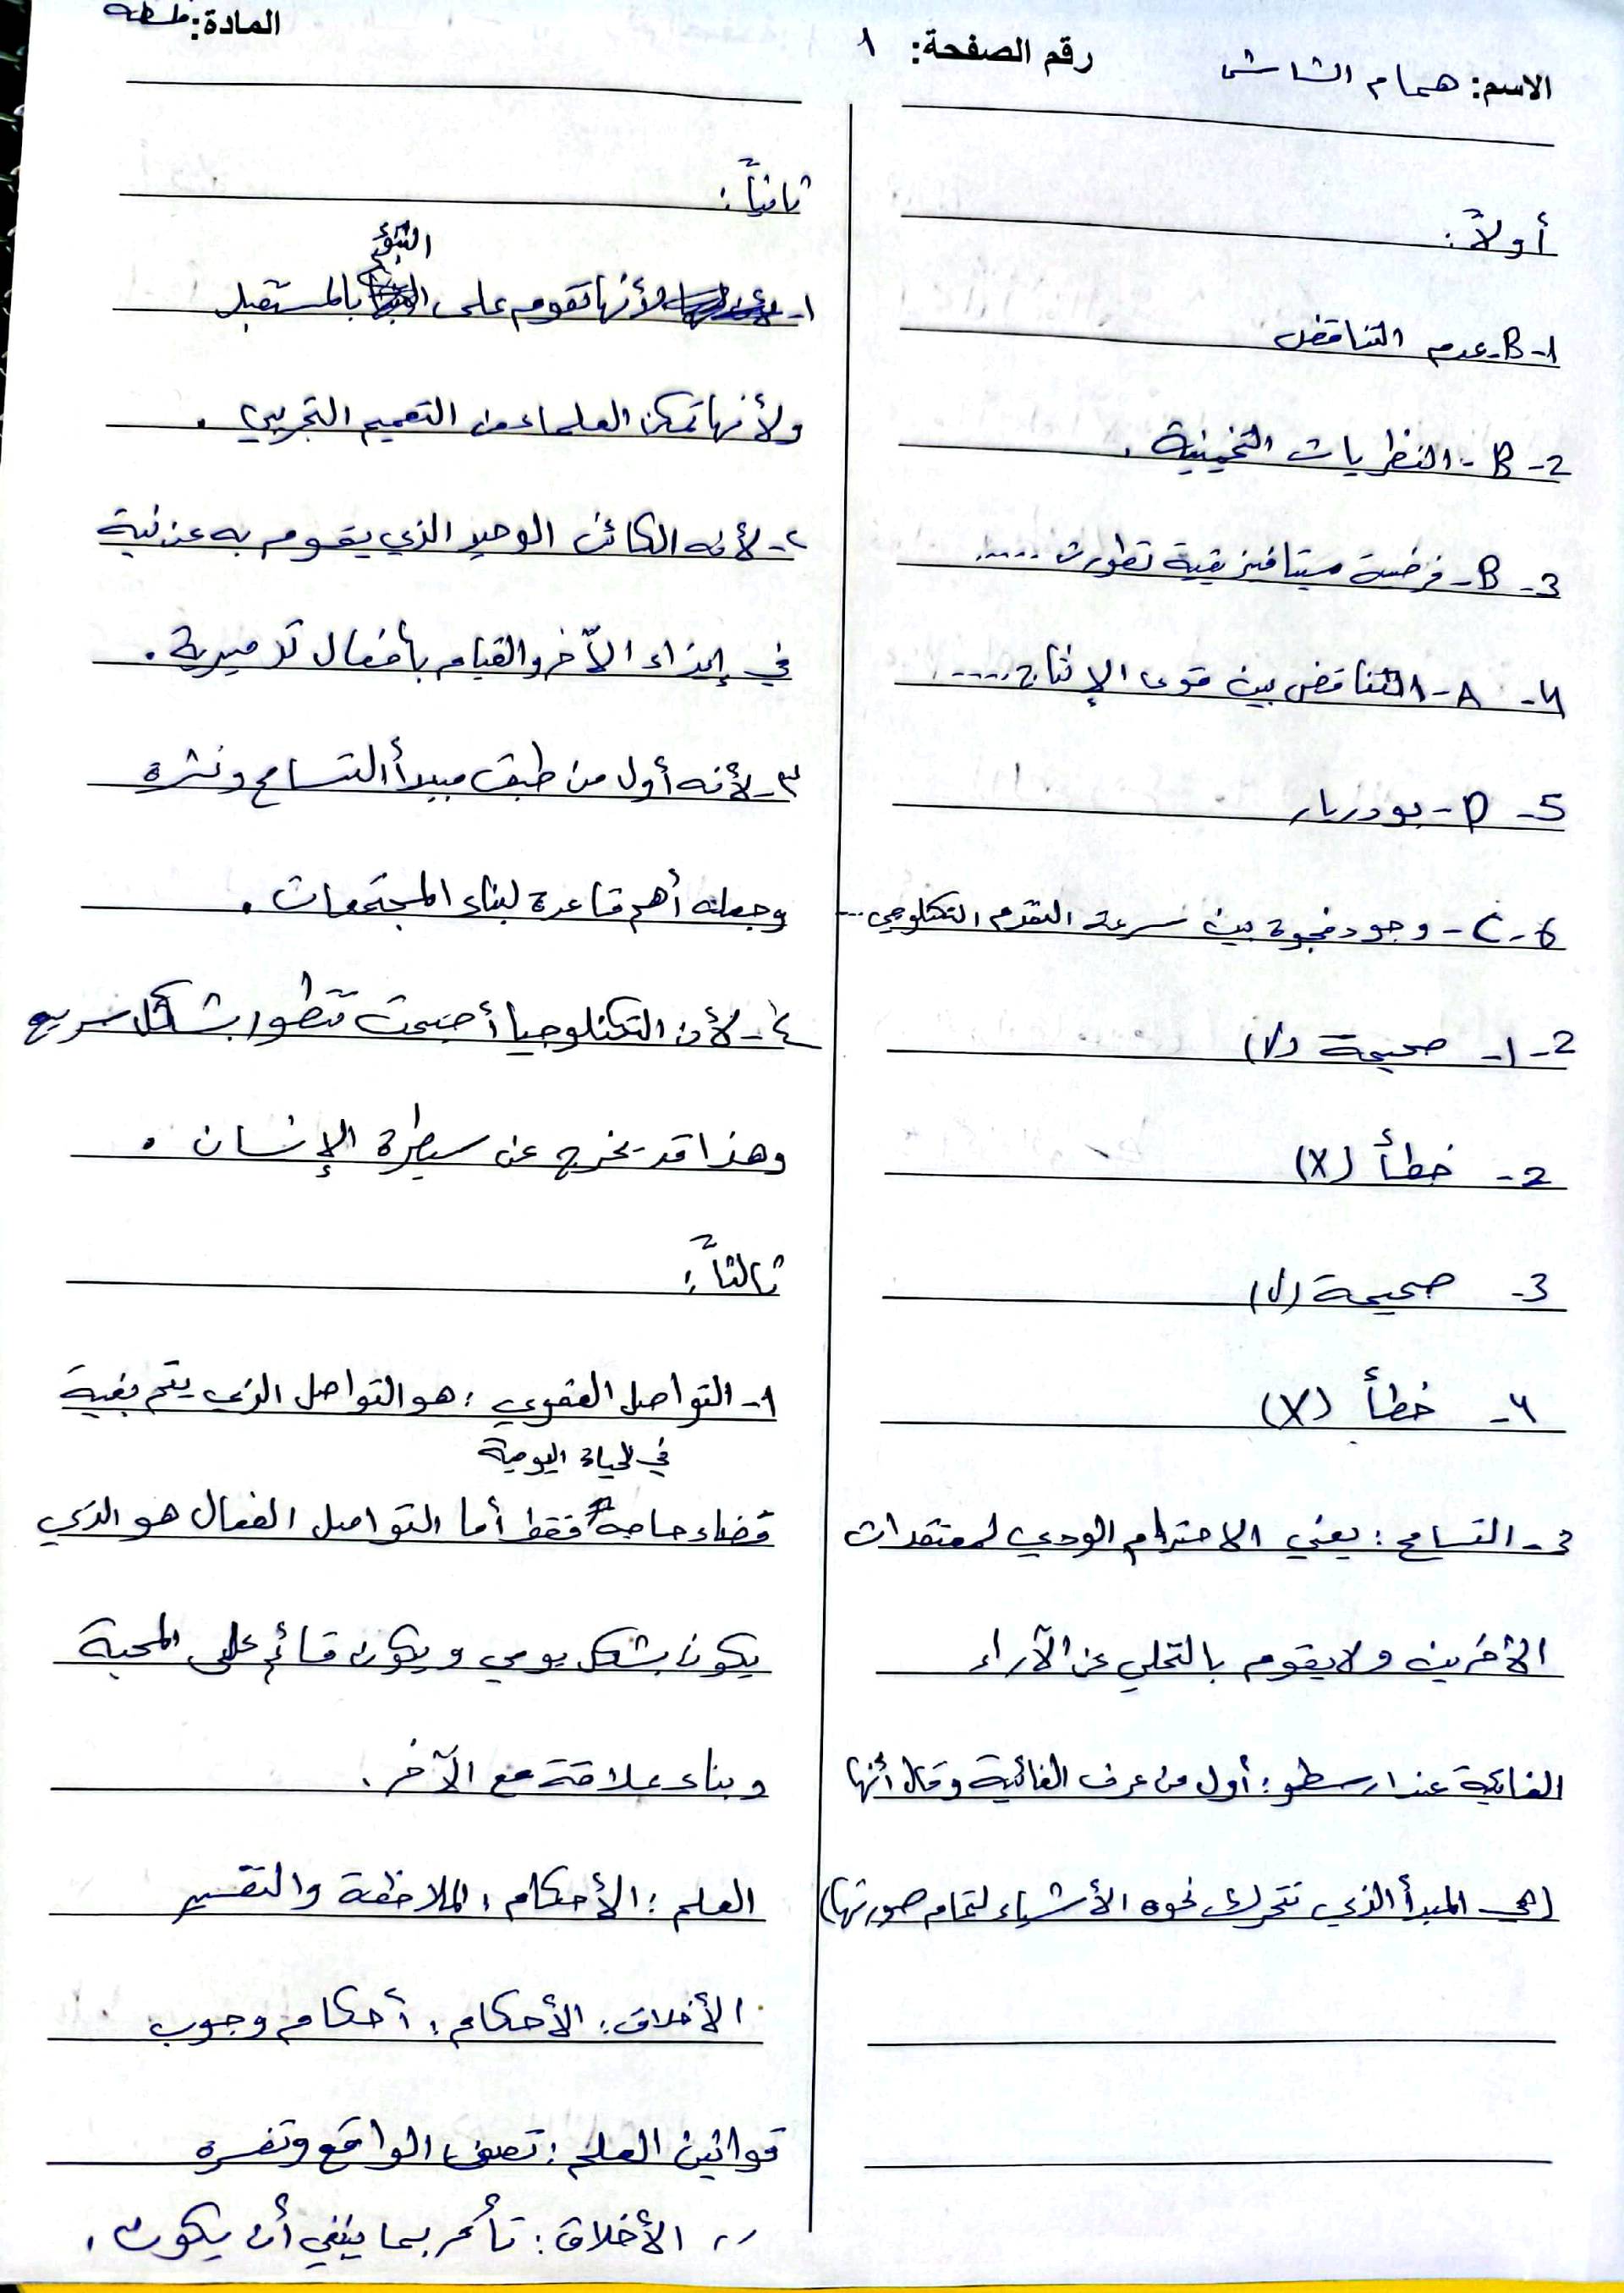 الاسم: همام الشاشي
رقم الصفحة: ١
المادة: فلسفة
أولاً:
١- B- عدم التناقض
2- B- النظريات التخمينية.
3- B- فرضية ميتافيزيقية تطورت .....
4- A- التناقض بين قوى الإنتاج .....
5- D- بودريار
6- C- وجود فجوة بين سرعة التقدم التكنلوجي ...
2- ١- صحيحة (√)
2- خطأ (X)
3- صحيحة (√)
4- خطأ (X)
3- التسامح: يعني الاحترام الودي لمعتقدات
الآخرين ولا يقوم بالتخلي عن الآراء
الغائية عند ارسطو: أول من عرف الغائية وقال أنها
(هي المبدأ الذي تتحرك نحوه الأشياء لتمام صورتها)
ثانياً:
١- لأنها تقوم على التنبؤ بالمستقبل
ولأنها تمكن العلماء من التعميم التجريبي.
٢- لأنه الكائن الوحيد الذي يقوم به عن نية
في إيذاء الآخر والقيام بأفعال تدميرية.
٣- لأنه أول من طبق مبدأ التسامح ونشره
وجعله أهم قاعدة لبناء المجتمعات.
٤- لأن التكنلوجيا أصبحت تتطور بشكل سريع
وهذا قد يخرج عن سيطرة الإنسان.
ثالثاً:
١- التواصل العفوي: هو التواصل الذي يتم بغية
قضاء حاجة في الحياة اليومية فقط أما التواصل الفعال هو الذي
يكون بشكل يومي ويكون قائم على المحبة
وبناء علاقة مع الآخر.
العلم: الأحكام: الملاحظة والتفسير
الأخلاق: الأحكام: أحكام وجوب
قوانين العلم: تصف الواقع وتفسره
،، الأخلاق: تأمر بما ينبغي أن يكون.